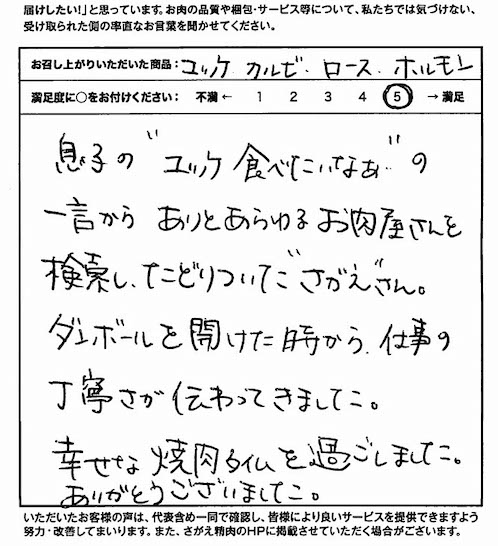 届けしたい!」と思っています。お肉の品質や梱包・サービス等について、私たちでは気づけない、
受け取られた側の率直なお言葉を聞かせてください。
お召し上がりいただいた商品: ユッケ カルビ・ロース・ホルモン
満足度に○をお付けください: 不満 ← 1 2 3 4 5 → 満足
息子の "ユッケ 食べたいなぁ" の
一言から ありとあらゆる お肉屋さんを
検索し、たどりついた "さがえ" さん。
ダンボールを開けた時から、仕事の
丁寧さが伝わってきました。
幸せな 焼肉タイムを過ごしました。
ありがとうございました。
いただいたお客様の声は、代表含め一同で確認し、皆様により良いサービスを提供できますよう
努力・改善してまいります。また、さがえ精肉のHPに掲載させていただく場合がございます。